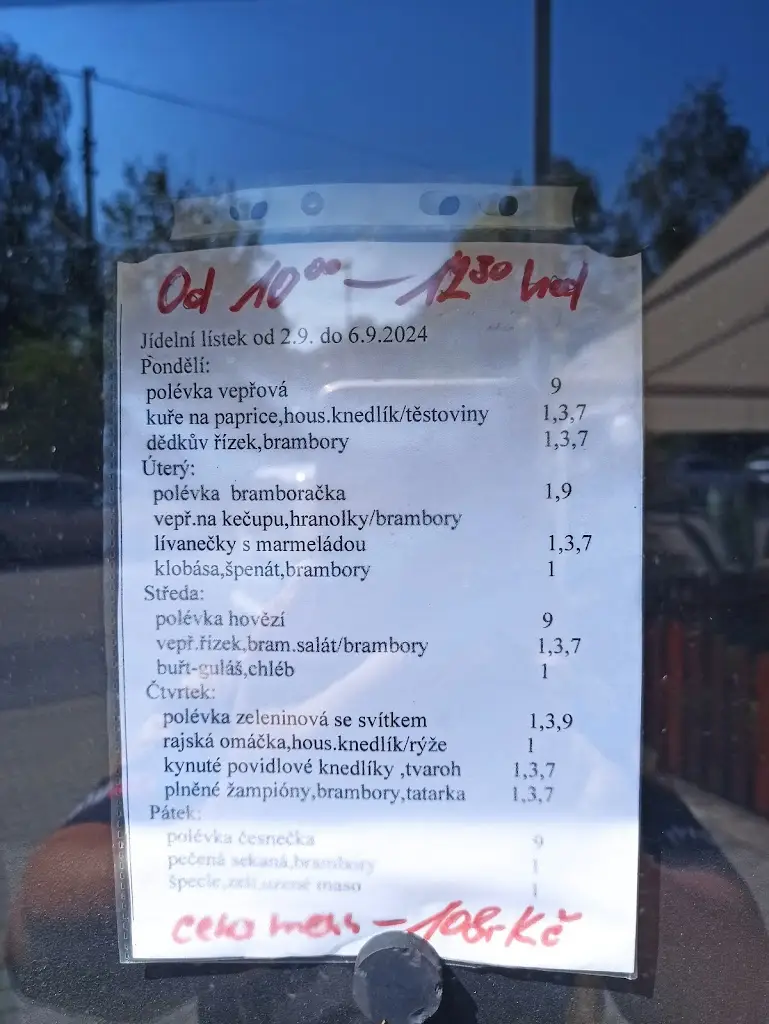 Od 10⁰⁰ – 12³⁰ hod
Jídelní lístek od 2.9. do 6.9.2024
Pondělí:
polévka vepřová 9
kuře na paprice,hous.knedlík/těstoviny 1,3,7
dědkův řízek,brambory 1,3,7
Úterý:
polévka bramboračka 1,9
vepř.na kečupu,hranolky/brambory
lívanečky s marmeládou 1,3,7
klobása,špenát,brambory 1
Středa:
polévka hovězí 9
vepř.řízek,bram.salát/brambory 1,3,7
buřt-guláš,chléb 1
Čtvrtek:
polévka zeleninová se svítkem 1,3,9
rajská omáčka,hous.knedlík/rýže 1
kynuté povidlové knedlíky ,tvaroh 1,3,7
plněné žampióny,brambory,tatarka 1,3,7
Pátek:
polévka česnečka 9
pečená sekaná,brambory 1
špecle,zelí,uzené maso 1
cena – 108,- Kč